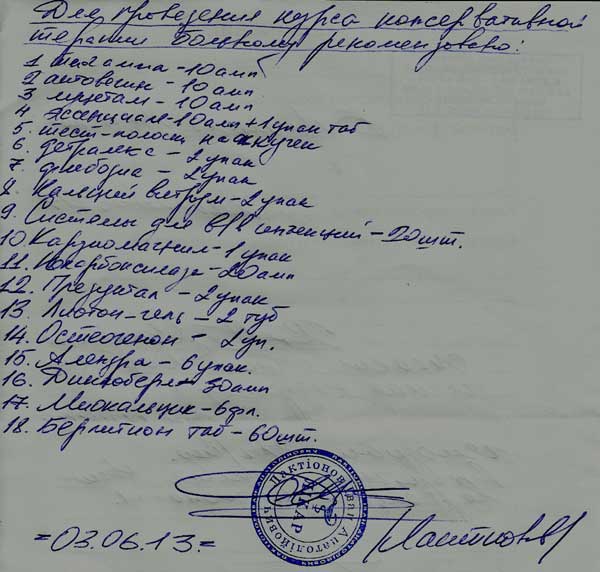 Для проведения курса консервативной
терапии больному рекомендовано:
1 тиогамма - 10 амп
2 актовегин - 10 амп
3 - 10 амп
4 Эссенциале - 10 амп + 1 упак таб
5 тест-полоски на
6. детралекс - 2 упак
7. флебодиа - 2 упак
8. Кальций витрум - 2 упак
9. Системы для в/в инфекций - 20 шт.
10. Кардиомагнил - 1 упак
11. Кокарбоксилаза - 20 амп
12. Предуктал - 2 упак
13. Лиотон-гель - 2 туб
14. Остеогенон - 2 уп.
15. Алендра - 6 упак.
16. Диклоберл - 30 амп
17. Миокальцик - 6 фл.
18. Берлитион таб - 60 шт.
Лактіонов Іван Анатолійович
ЛІКАР
= 03.06.13 =